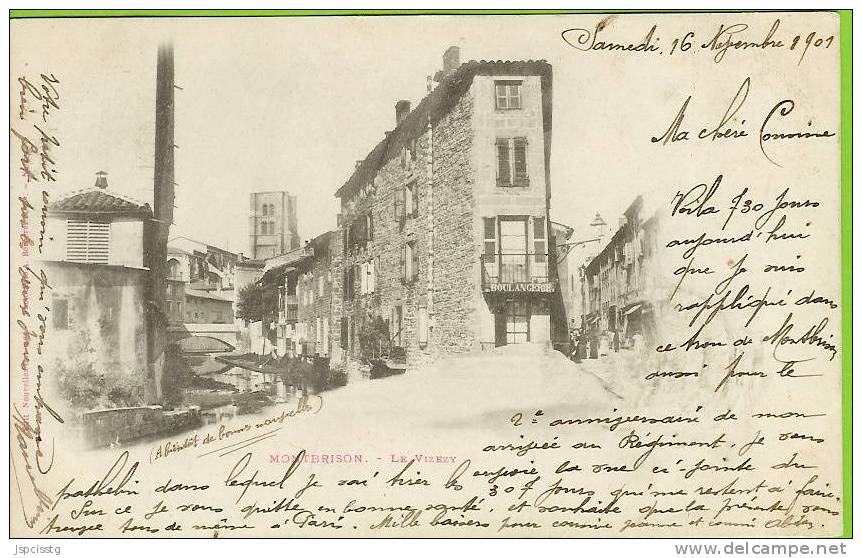 Samedi, 16 Novembre 1901
Ma chère Cousine
Voila 730 jours
aujourd'hui
que je suis
rappliqué dans
ce trou de Montbrison
aussi pour le
2e anniversaire de mon
arrivée au Régiment, je vous
envoie la vue ci-jointe du
patelin dans lequel je vais hier les 307 jours qui me restent à faire.
Sur ce je vous quitte en bonne santé, et souhaite que la présente vous
trouve tous de même à Paris. Mille baisers pour cousine Jeanne et cousin
(A bientôt de bonnes nouvelles)
Votre petit cousin qui vous embrasse
bien fort
BOULANGERIE
MONTBRISON. - LE VIZEZY
jspcisstg
http://www.delcampe.net